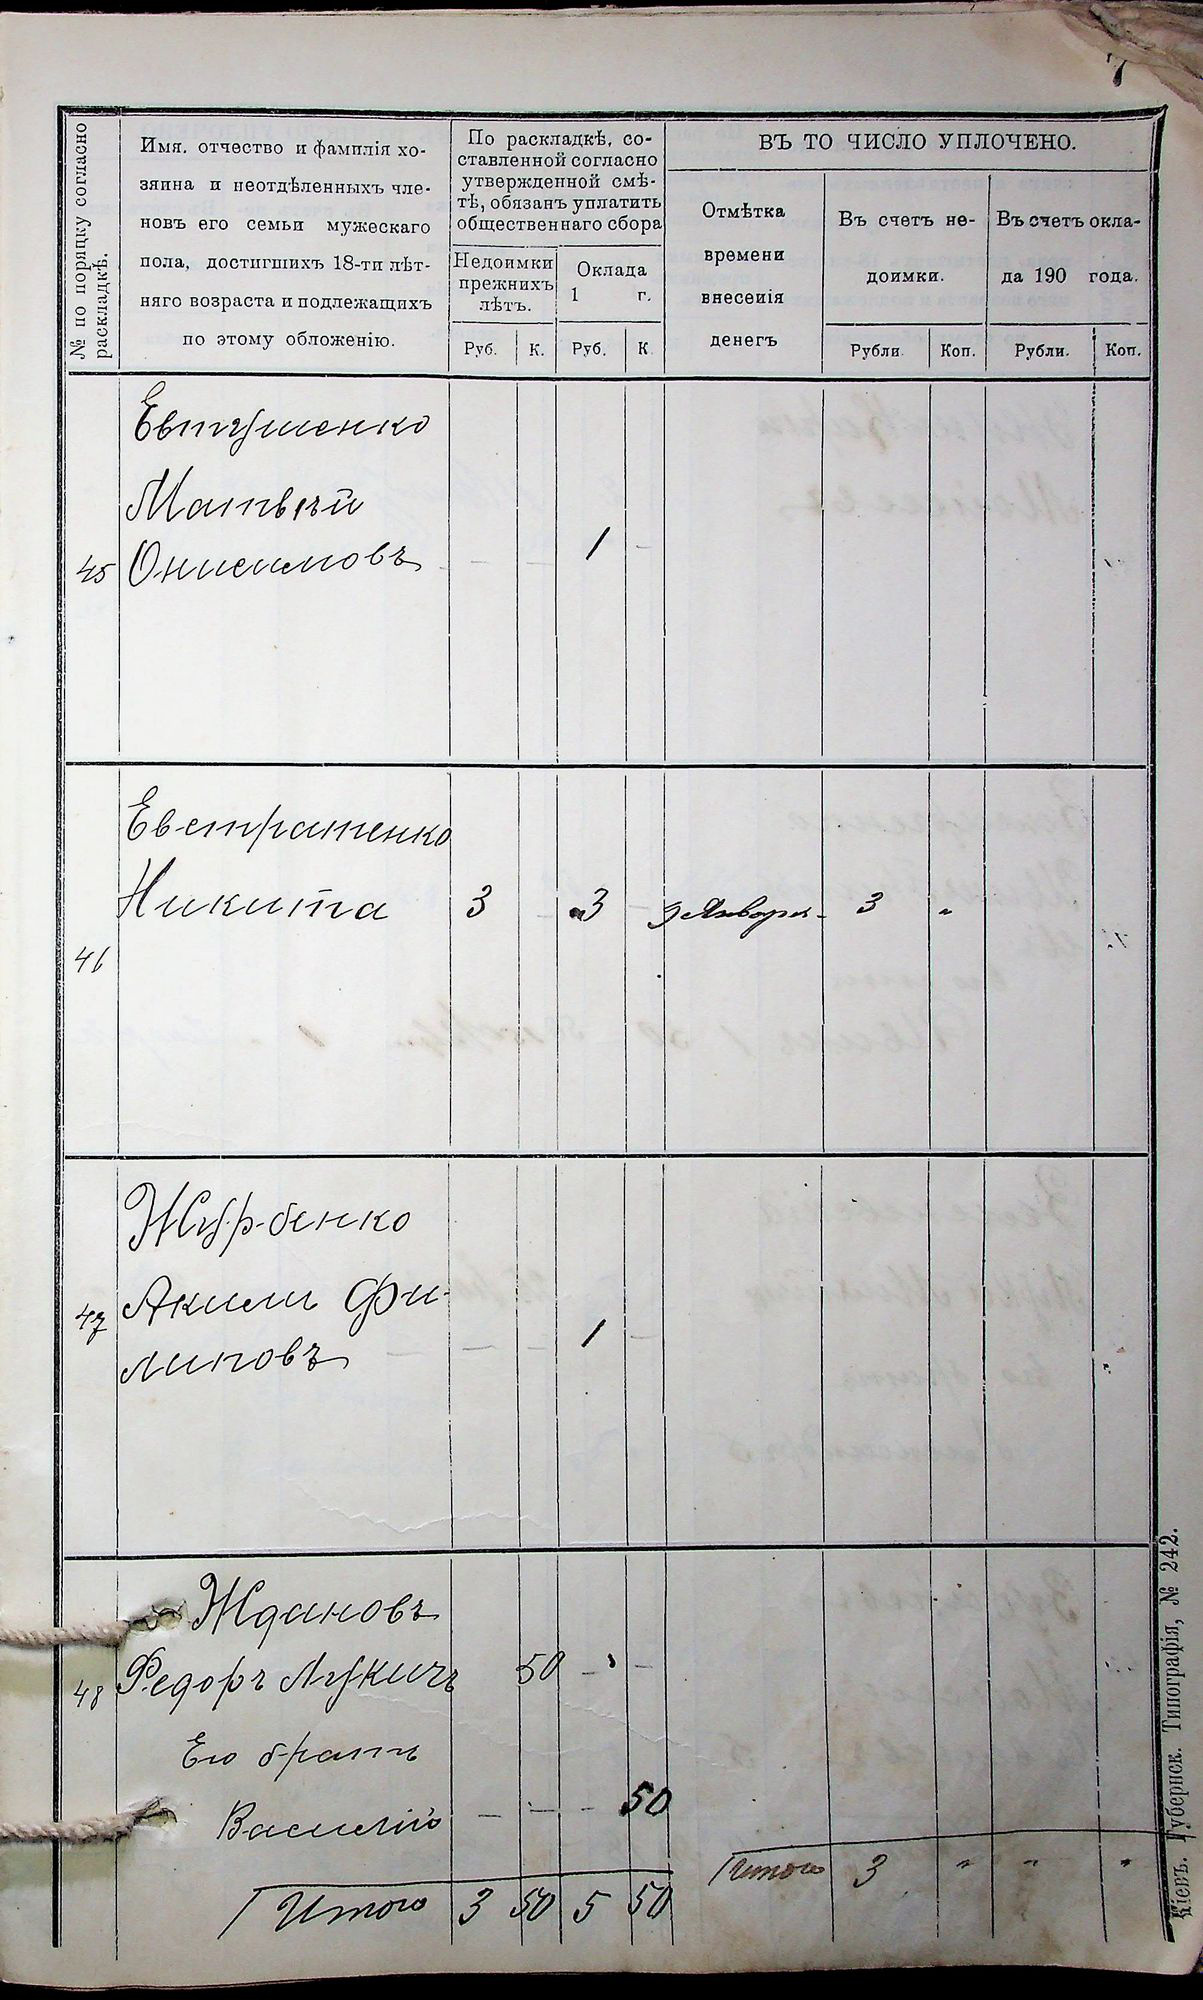 7
№ по порядку согласно
раскладкѣ.
Имя, отчество и фамилія хо-
зяина и неотдѣленныхъ чле-
новъ его семьи мужескаго
пола, достигшихъ 18-ти лѣт-
няго возраста и подлежащихъ
по этому обложенію.
По раскладкѣ, со-
ставленной согласно
утвержденной смѣ-
тѣ, обязанъ уплатить
общественнаго сбора
Недоимки
прежнихъ
лѣтъ.
Оклада
1 г.
Руб. К. Руб. К
ВЪ ТО ЧИСЛО УПЛОЧЕНО.
Отмѣтка
времени
внесенія
денегъ
Въ счетъ не-
доимки.
Въ счетъ окла-
да 190 года.
Рубли Коп. Рубли. Коп.
Евтушенко
Матвѣй
45 Онисимовъ — — 1 —
Евстратенко
Никита 3 — 3 — 9 Января 3 "
46
Журбенко
47 Акимъ Фи-
липовъ — — — 1 —
Ждановъ
48 Федоръ Лукичъ 50 — —
Его братъ
Василій — — — 50
Итого 3 50 5 50
Итого 3 " " "
Кіевъ. Губернск. Типографія, № 242.